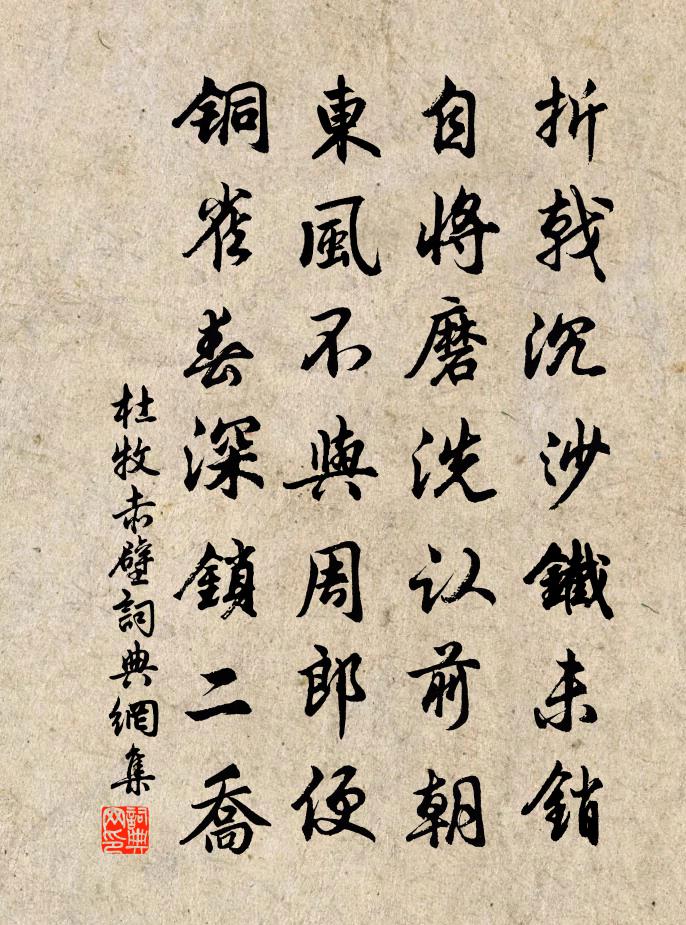 折戟沉沙鐵未銷
自將磨洗认前朝
東風不與周郎便
銅雀春深鎖二喬
杜牧赤壁詞典網集
詞典
网印